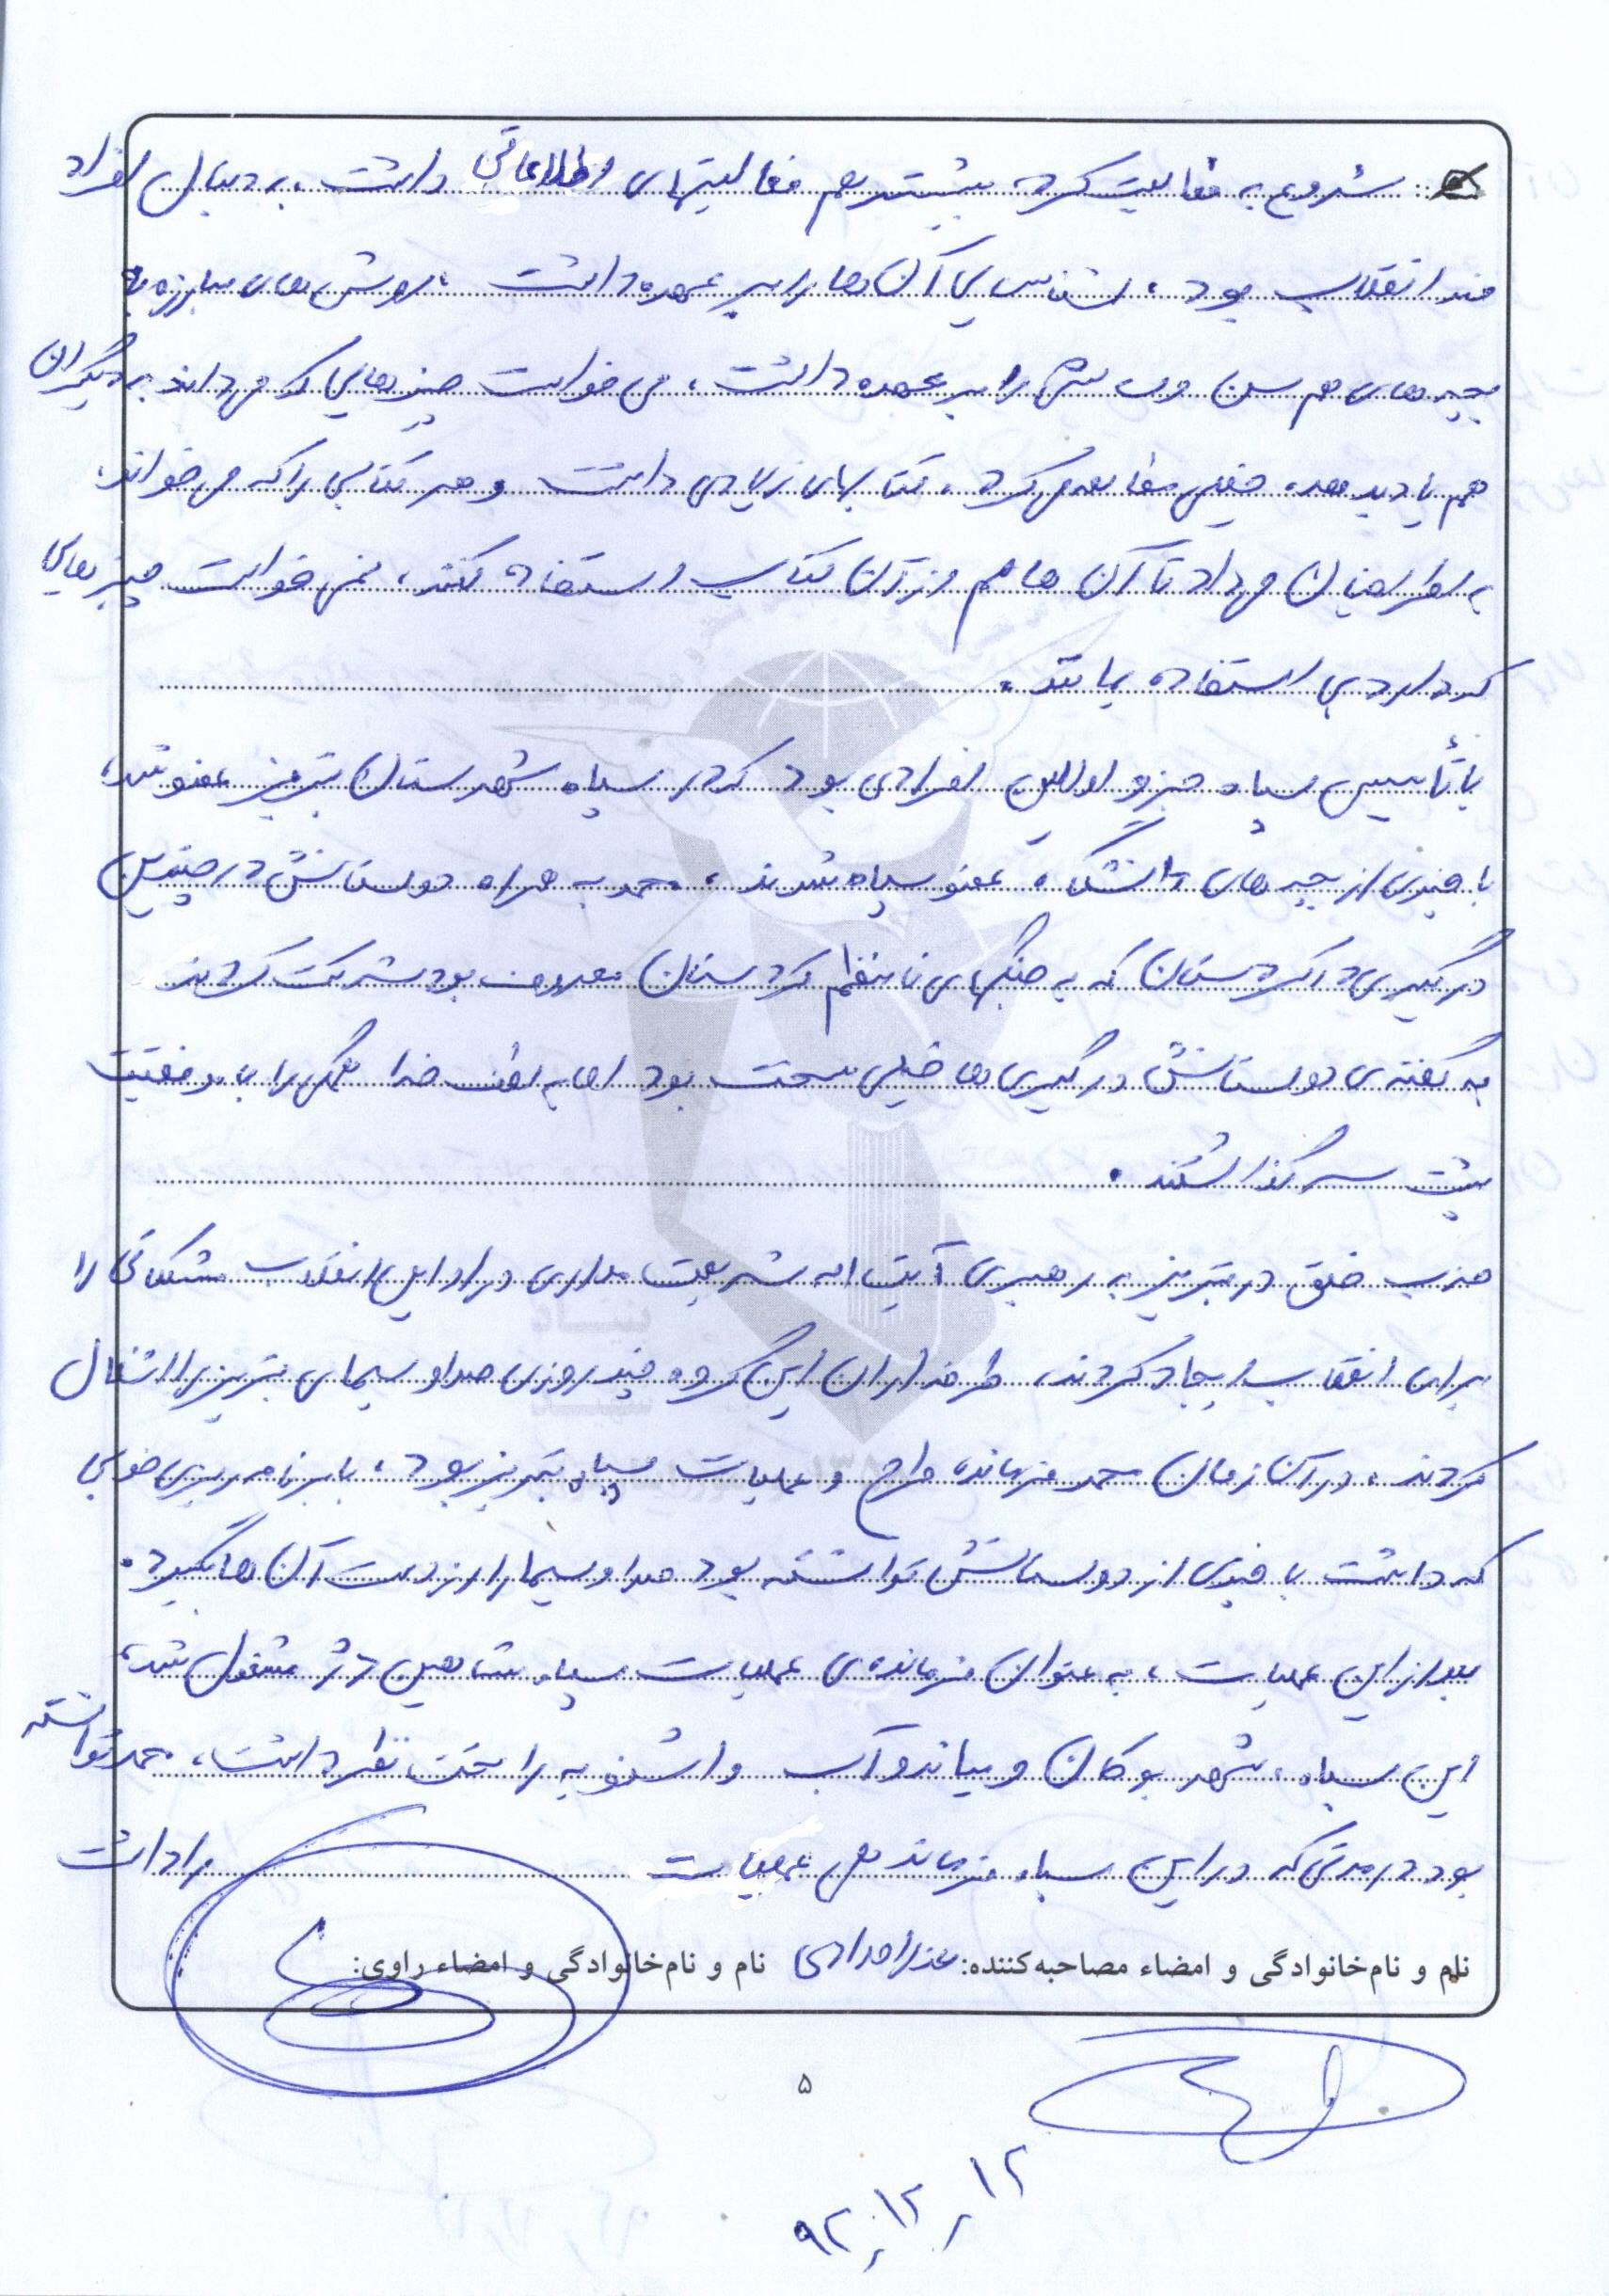 شروع به فعالیت کرد، بیشتر هم فعالیتهای اطلاعاتی داشت، به دنبال افراد
ضد انقلاب بود، شناسایی آن‌ها را بر عهده داشت، روش‌های مبارزه به
بچه‌های هم سن و را بر عهده داشت، می‌خواست چیزهایی که می‌داند به دیگران
هم یاد بدهد، خیلی مطالعه می‌کرد، کتابهای زیادی داشت و هر کتابی را که می‌خواند،
به اطرافیان می‌داد تا آن‌ها هم از آن کتاب استفاده کنند، نمی‌خواست چیزهایی
که دارد بی استفاده بماند.
با تأسیس سپاه جزو اولین افرادی بود که در سپاه شهرستان تبریز عضو شد،
با چندی از بچه‌های دانشگاه، عضو سپاه شدند، محمد به همراه دوستانش در چندین
درگیری در کردستان که به جنگهای نامنظم کردستان معروف بود شرکت کردند
به گفته‌ی دوستانش درگیری‌ها خیلی سخت بود اما به لطف خدا همگی را با موفقیت
پشت سر گذاشتند.
حزب خلق در تبریز به رهبری آیت اله شریعت مداری در اوایل انقلاب مشکلاتی را
برای انقلاب ایجاد کردند، طرفداران این گروه چند روزی صدا و سیمای تبریز را اشغال
کردند، در آن زمان محمد فرمانده طرح و عملیات سپاه تبریز بود، با برنامه‌ریزی خوبی
که داشت با چندی از دوستانش توانسته بود صدا و سیما را از دست آن‌ها بگیرد.
بعد از این عملیات، به عنوان فرمانده‌ی عملیات سپاه شاهین دژ مشغول شد،
این سپاه، شهر بوکان و میاندوآب و اشنویه را تحت نظر داشت، محمد توانسته
بود در مدتی که در این سپاه فرماندهی عملیات را داشت
نام و نام‌خانوادگی و امضاء مصاحبه‌کننده: عذرا مرادی نام و نام‌خانوادگی و امضاء راوی:
۵
۹۲،۱۲،۱۲